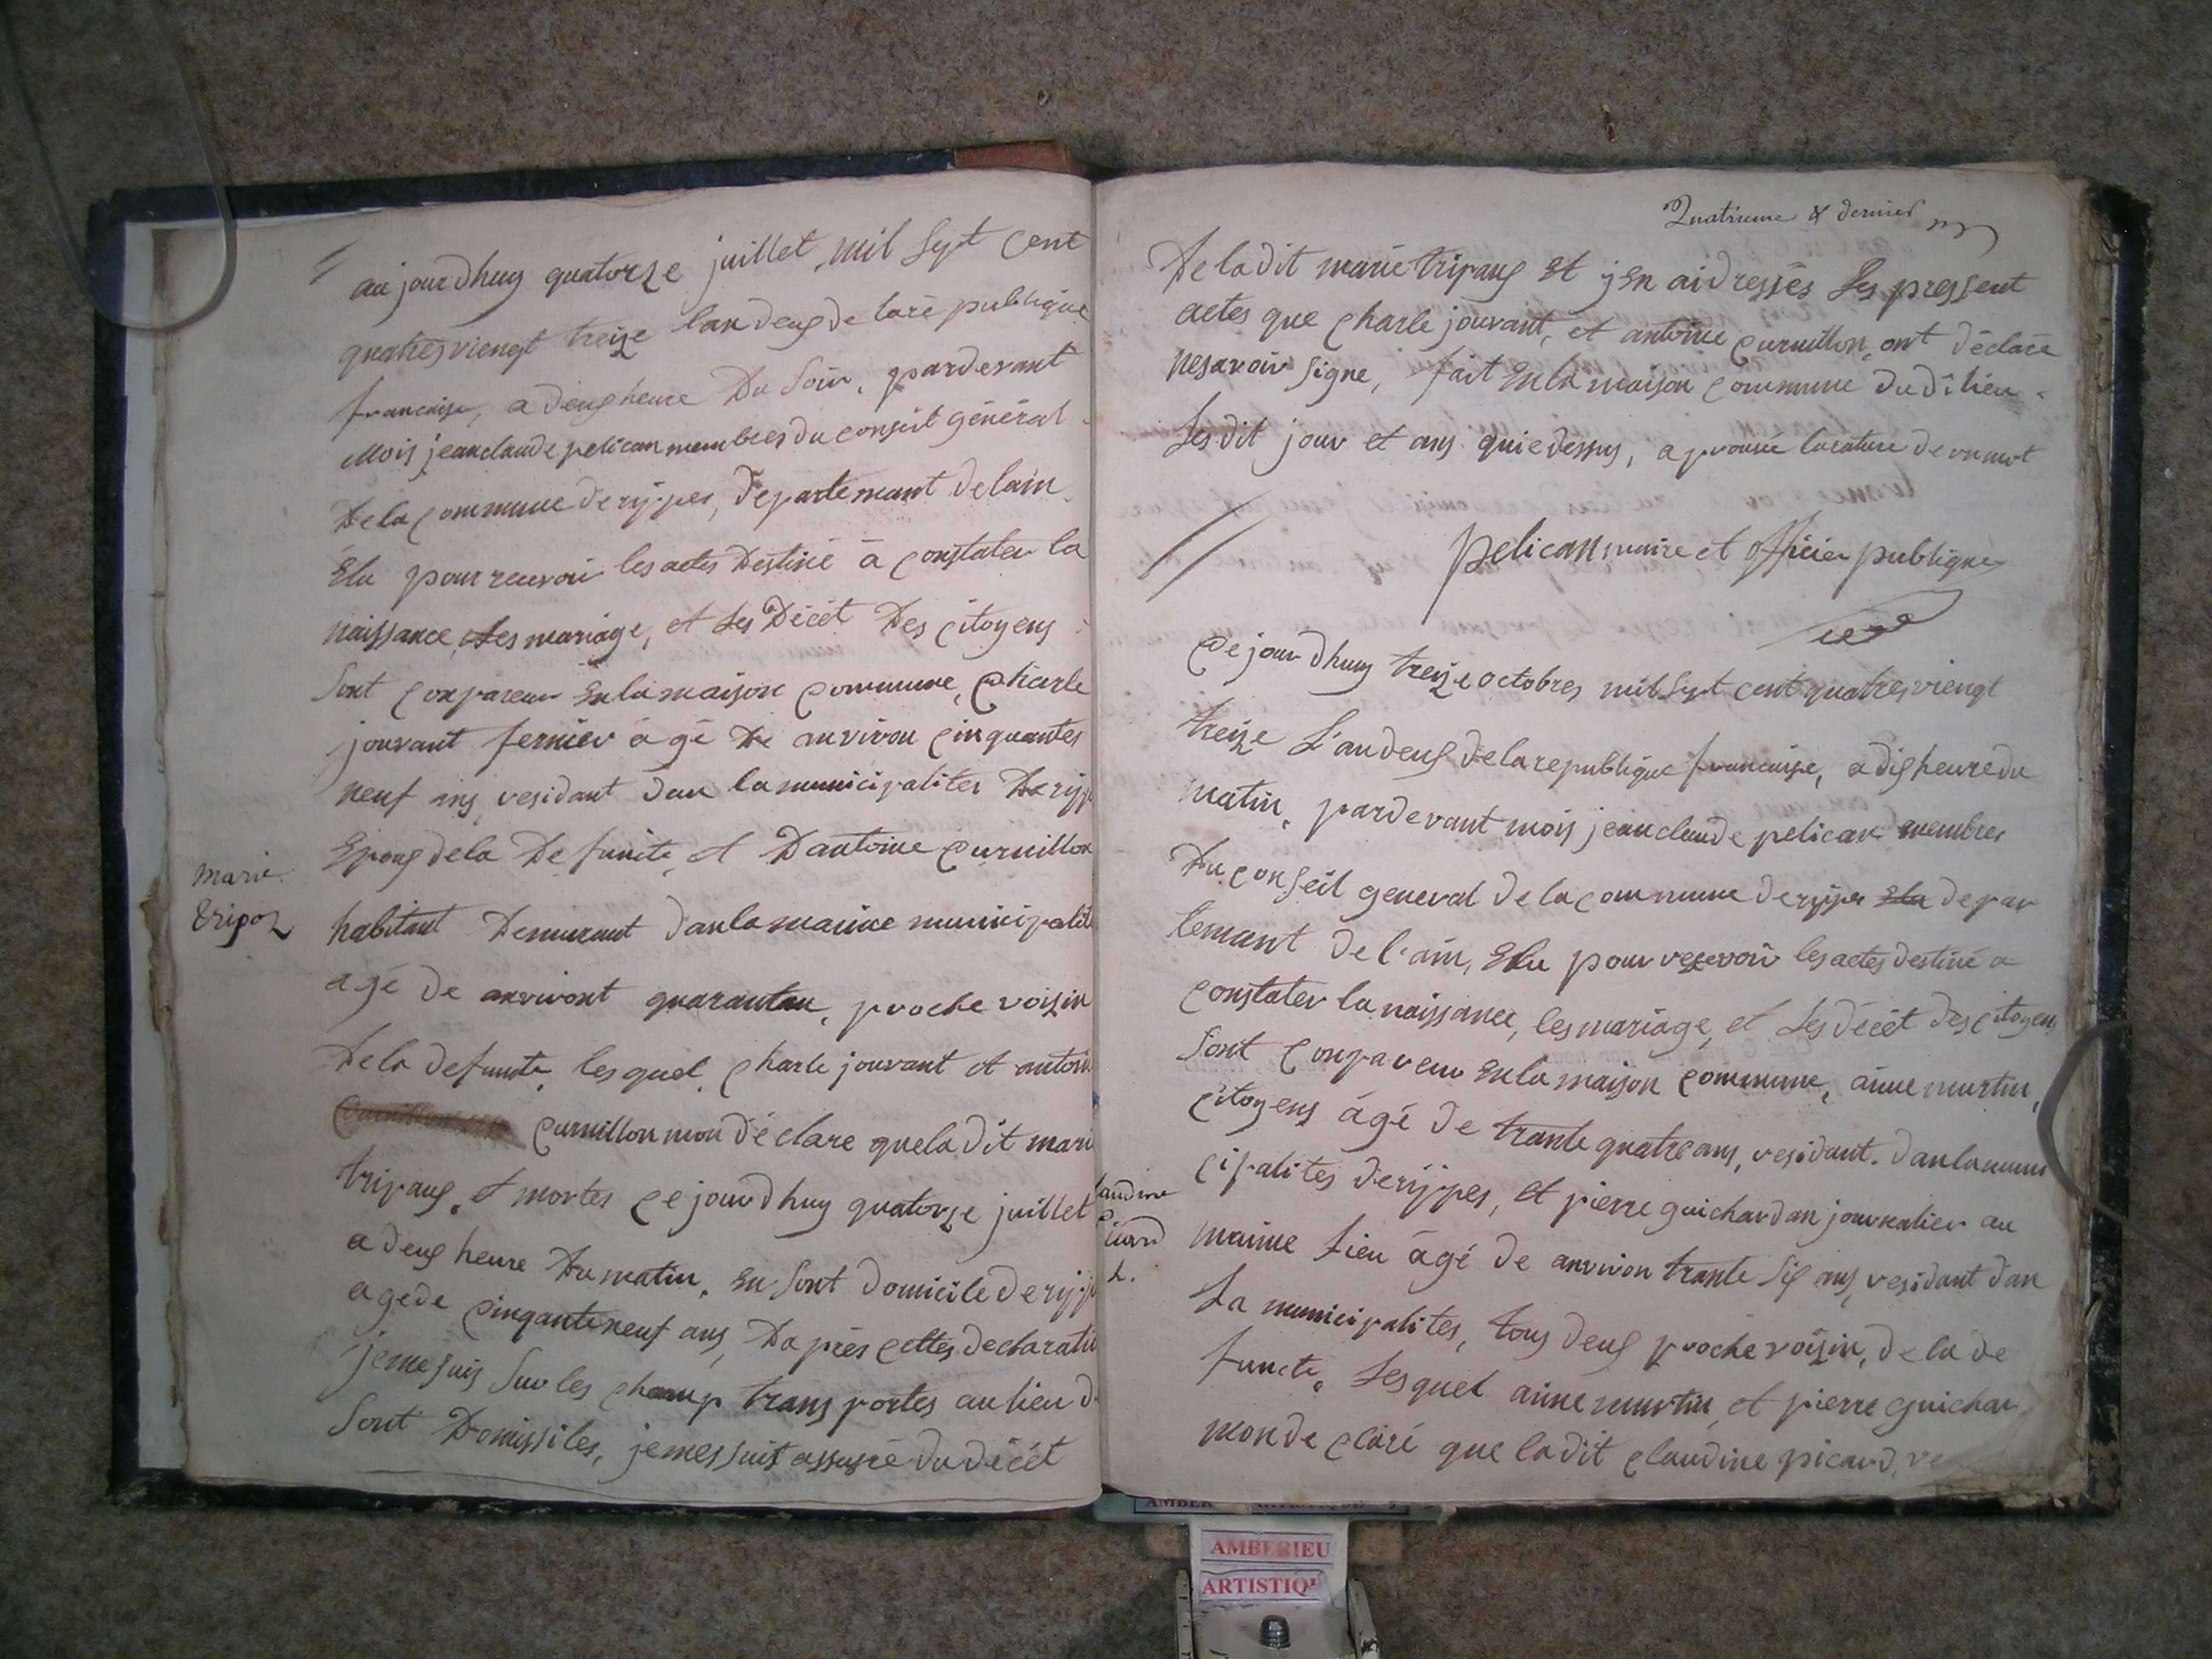 aujourdhuy quatorze juillet, mil sept cent
quatresviengt treize lan deux de laré publique
francaise, a deux heure Du Soir, pardevant
Mois jeanclaude pelican membres du conseil général
De la commune de rippes, departemant delain
Elu pour recevoir les actes Destiné à constater la
naissance les mariage, et Les Décét Des citoyens
Sont conpareur En la maison commune, charle
jouvant fermier agé De anviron cinquantes
neuf ans residant dan la municipalites De ripp
Epoux de la Defunte, et Dantoine curnillon
Marie
Tripoz
habitant Demurant dan la maime municipalit
agé de anviront quarantan, proche voisin
De la defunte, lesquel, charle jouvant et antoin
curnillon mon déclare que la dit mari
tripaux, et mortes ce jourdhuy quatorze juillet
a deux heure Du matin, en Sont domicile De ripp
agé de cinqantineuf ans, Daprès cettes declaratio
jeme suis Sur les champ trans portes au lieu d
Sont Domissiles, jemes suis assuré du décét
Quatrieme & dernier
De la dit marie tripaux Et jen ai dressés Les pressent
actes que charle jouvant, et antoine curnillon, ont déclaré
ne savoir Signe, fait En la maison commune du di lieu
Les dit jour et ans quiedessus, aprouve larature de un mot
pelican maire et officier publique
Ce jourdhuy treize octobres mil sept cent quatresviengt
treize L'an deux de la republique francaise, a dix heure du
matin, pardevant mois jeanclaude pelican membres
Du conseil general de la commune de rippes Elu depar
temant de l'ain, Elu pour recevoir les actes destiné a
constater la naissance, les mariage, et Les décét des citoyens
Sont conpareur En la maison commune, aime murtin,
citoyens âgé de trante quatre ans, residant. dan la muni
cipalites de rippes, et pierre guichardan journalier au
laudine
icard
maime Lieu âgé de anviron trante Six ans, residant dan
La municipalites, tous deux proche voisin, de la de
functe, Lesquel aime murtin, et pierre guichar
mon de claré que la dit claudine picard, ve
AMBERIEU
ARTISTIQU